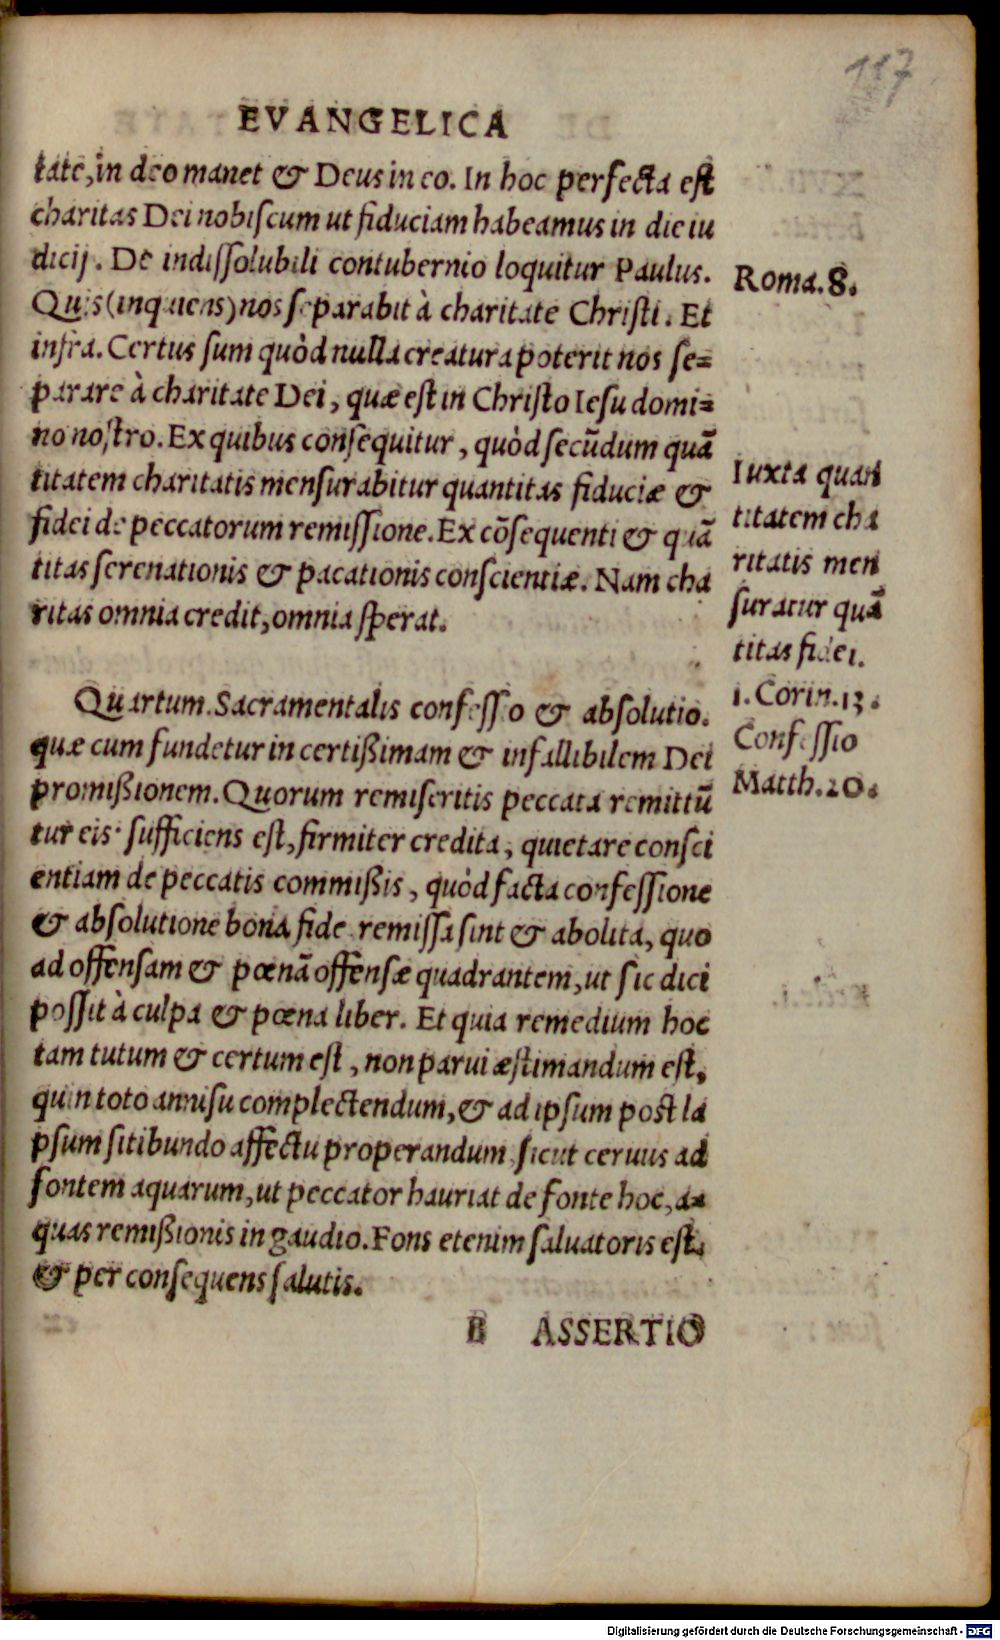 117
EVANGELICA
tate, in deo manet & Deus in eo. In hoc perfecta est
charitas Dei nobiscum ut fiduciam habeamus in die iu
dicij. De indissolubili contubernio loquitur Paulus.
Quis (inquiens) nos separabit à charitate Christi. Et
infra. Certus sum quòd nulla creatura poterit nos se=
parare à charitate Dei, quæ est in Christo Iesu domi=
no nostro. Ex quibus consequitur, quòd secũdum quã
titatem charitatis mensurabitur quantitas fiduciæ &
fidei de peccatorum remissione. Ex cõsequenti & quã
titas serenationis & pacationis conscientiæ. Nam cha
ritas omnia credit, omnia sperat.
Quartum. Sacramentalis confessio & absolutio.
quæ cum fundetur in certißimam & infallibilem Dei
promißionem. Quorum remiseritis peccata remittũ
tur eis· sufficiens est, firmiter credita, quietare consci
entiam de peccatis commißis, quòd facta confessione
& absolutione bona fide remissa sint & abolita, quo
ad offensam & pœnã offensæ quadrantem, ut sic dici
possit à culpa & pœna liber. Et quia remedium hoc
tam tutum & certum est, non parui æstimandum est,
quin toto annisu complectendum, & ad ipsum post la
psum sitibundo affectu properandum, sicut ceruus ad
fontem aquarum, ut peccator hauriat de fonte hoc, a=
quas remißionis in gaudio. Fons etenim saluatoris est,
& per consequens salutis.
B ASSERTIO
Roma. 8.
Iuxta quan
titatem cha
ritatis men
suratur quã
titas fidei.
1. Corin. 13.
Confessio
Matth. 20.
Digitalisierung gefördert durch die Deutsche Forschungsgemeinschaft - DFG